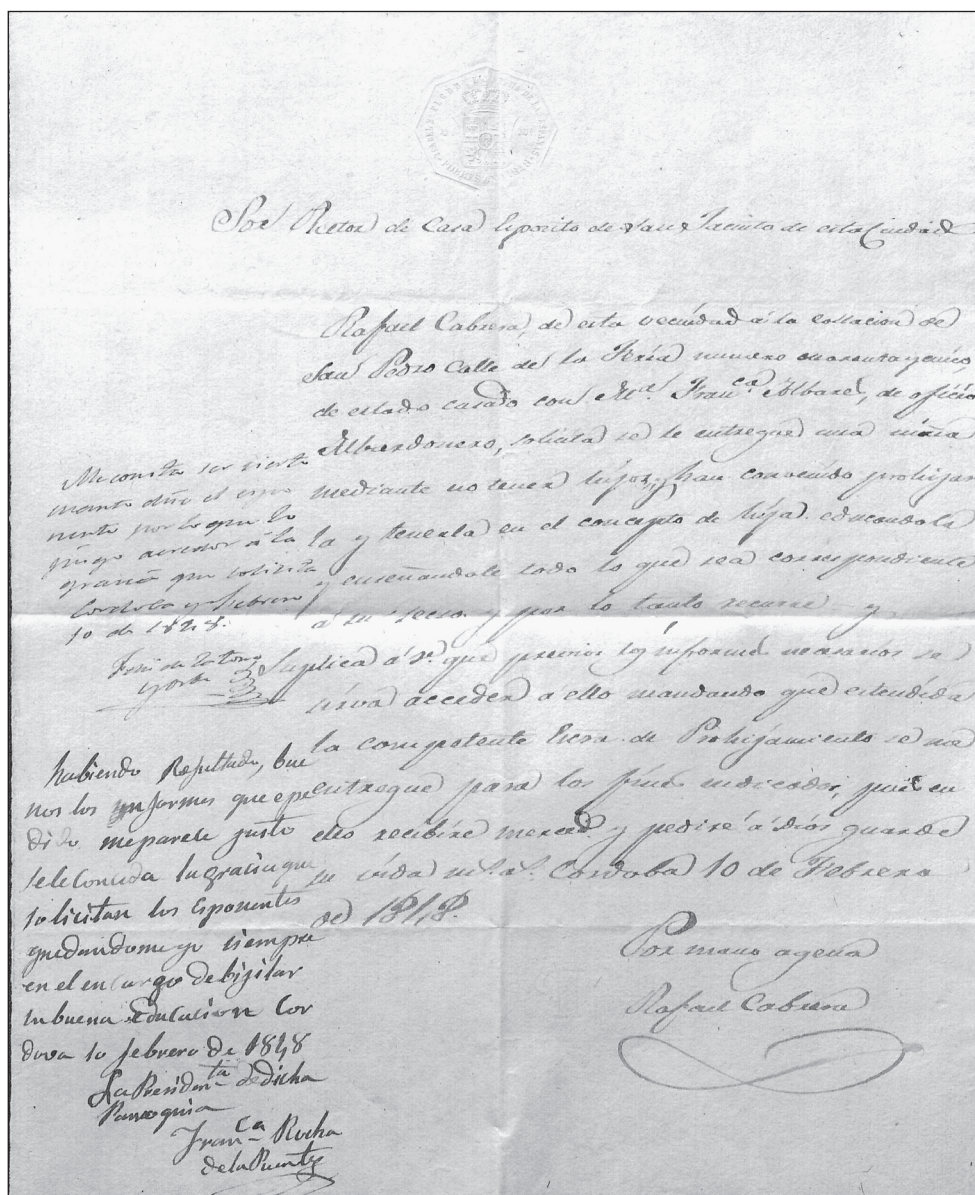 Sor Rector de Casa Esposito de San Jacinto de esta Ciudad
Rafael Cabrera, de esta vecindad á la collacion de
San Pedro Calle de la Feria numero cuarenta y cinco,
de estado casado con Mª. Franca. Albarez, de oficio
Albardonero, solicita se le entregue una niña
mediante no tener hijos, y han convenido prohijar
la y tenerla en el concepto de hija educandola
y enseñandole todo lo que sea correspondiente
á su secso y por lo tanto recurre y
Suplica á V. que previos los informes necesarios se
sirva acceder a ello mandando que estendida
la competente Escra. de Prohijamiento se me
entregue para los fines indicados, pues en
ello recibire merced y pediré á dios guarde
su vida ms. as. Cordoba 10 de Febrero
de 1848.
Por mano agena
Rafael Cabrera
Me consta ser cierto
cuanto dice el espo
nente por lo que lo
juzgo acreedor á la
gracia que solicita
Cordoba y Febrero
10 de 1848.
habiendo Resultado, bue
nos los ynformes que epe
dido me parese justo
sele Conceda la gracia que
solicitan los Esponentes
quedandome yo siempre
en el encargo de bijilar
su buena Educacion Cor
dova 10 febrero de 1848
La Presidenta de dicha
Parroquia
Franca Rocha
de la Puente